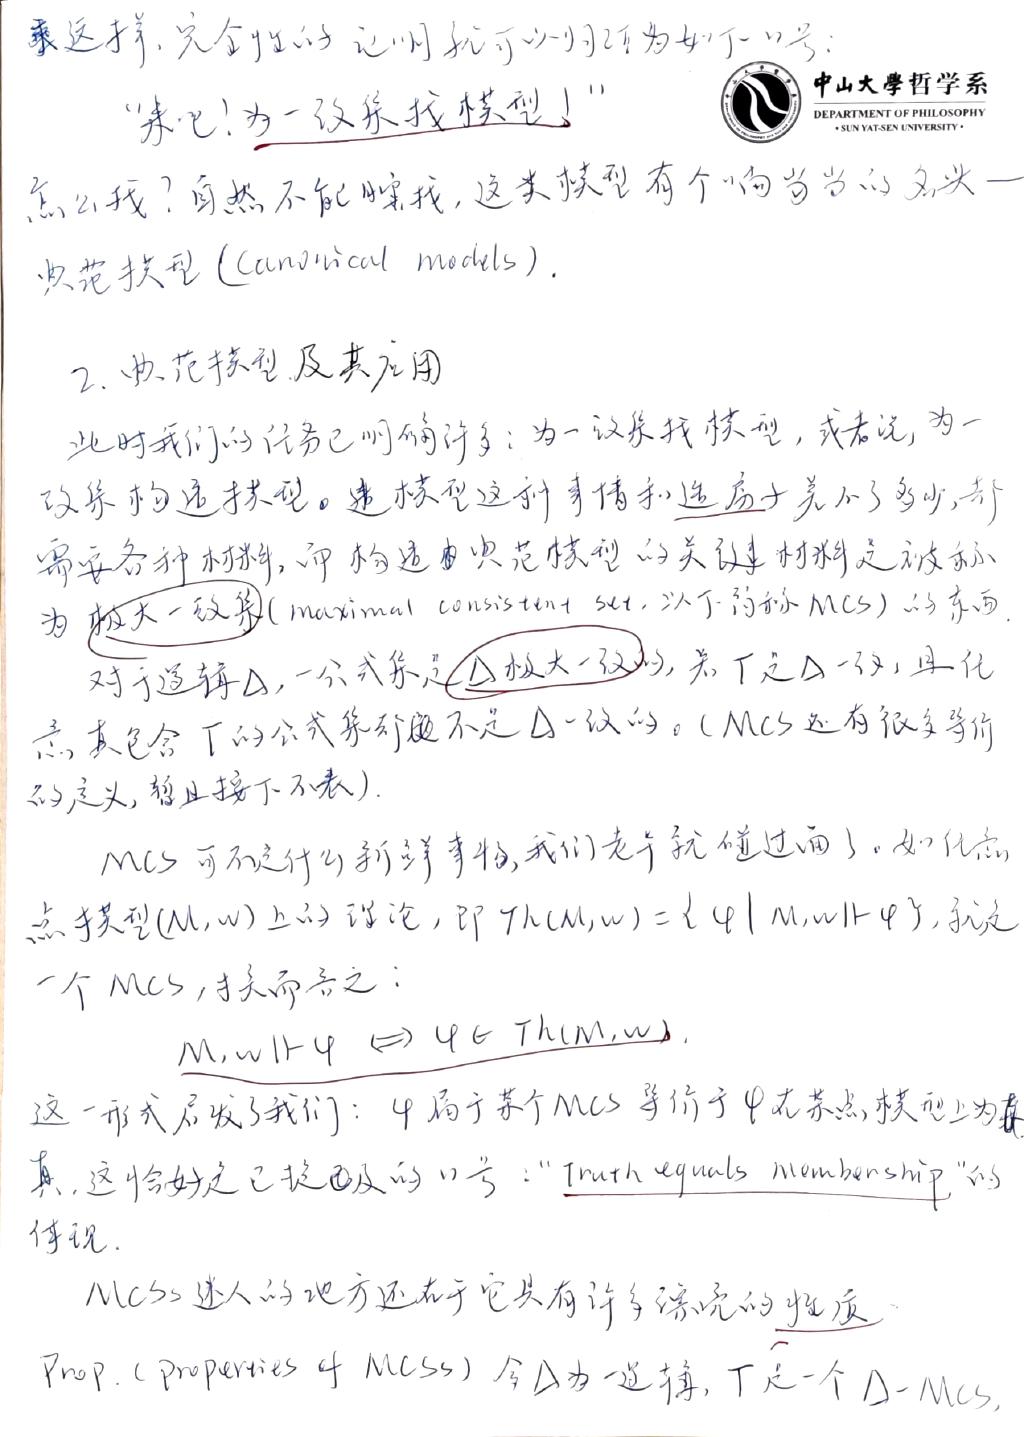 这样，完全性的证明就可以归项为如下口号：
“来吧！为一致集找模型！”
中山大學哲学系
DEPARTMENT OF PHILOSOPHY
· SUN YAT-SEN UNIVERSITY ·
怎么找？自然不能瞎找，这类模型有个响当当的名头—
典范模型 (Canonical models).
2. 典范模型及其应用
此时我们的任务已明确许多：为一致集找模型，或者说，为一
致集构造模型。造模型这种事情和造房子差不了多少，都
需要各种材料，而构造典范模型的关键材料是被称
为极大一致集(maximal consistent set，以下简称MCS)的东西.
对于逻辑Δ，一公式集是Δ极大一致的，若Γ是Δ一致，且任
意真包含Γ的公式集都不是Δ一致的。(MCS还有很多等价
的定义，暂且按下不表).
MCS可不是什么新鲜事物，我们老早就碰过面了。如任意
点模型(M,w)上的理论，即Th(M,w)={φ| M,w⊩φ}，就是
一个MCS，换而言之：
M,w⊩φ ⇔ φ∈Th(M,w).
这一形式启发了我们：φ属于某个MCS等价于φ在某点模型上为
真，这恰好是已提及的口号：“Truth equals membership”的
体现.
MCSs迷人的地方还在于它具有许多漂亮的性质
Prop. (properties of MCSs) 令Δ为一逻辑，Γ是一个Δ-MCS,